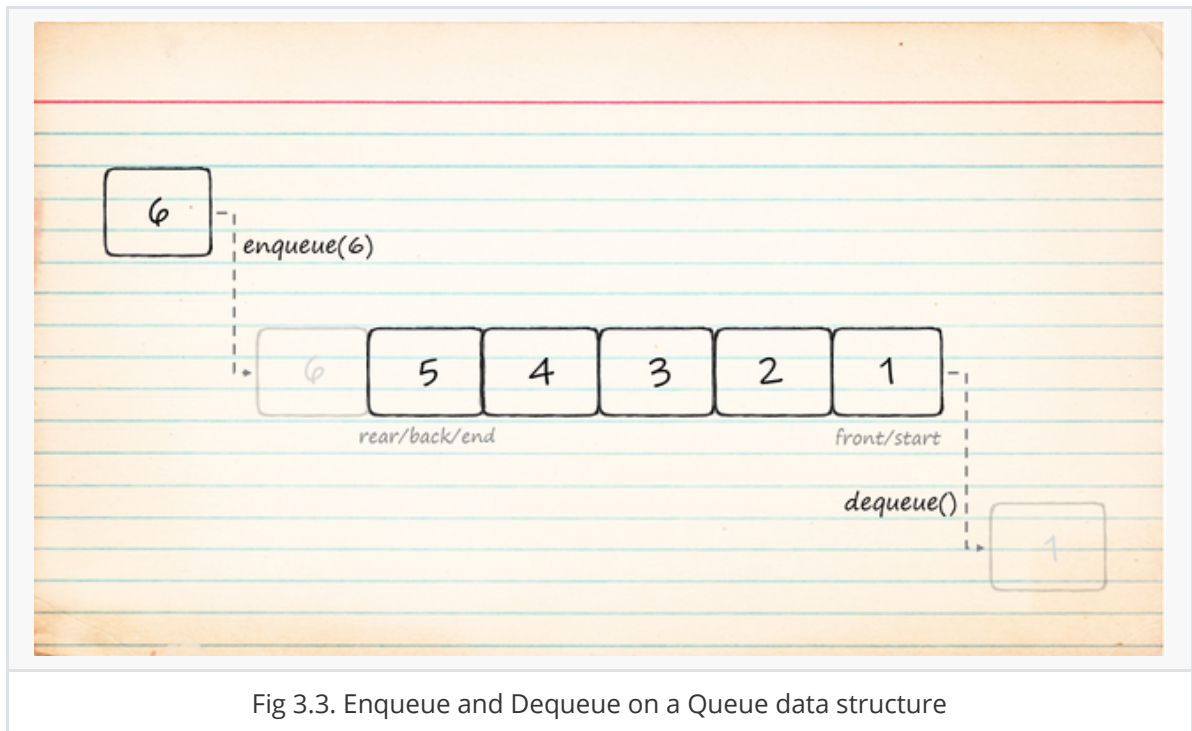 6
enqueue(6)
6 5 4 3 2 1
rear/back/end front/start
dequeue()
1
Fig 3.3. Enqueue and Dequeue on a Queue data structure